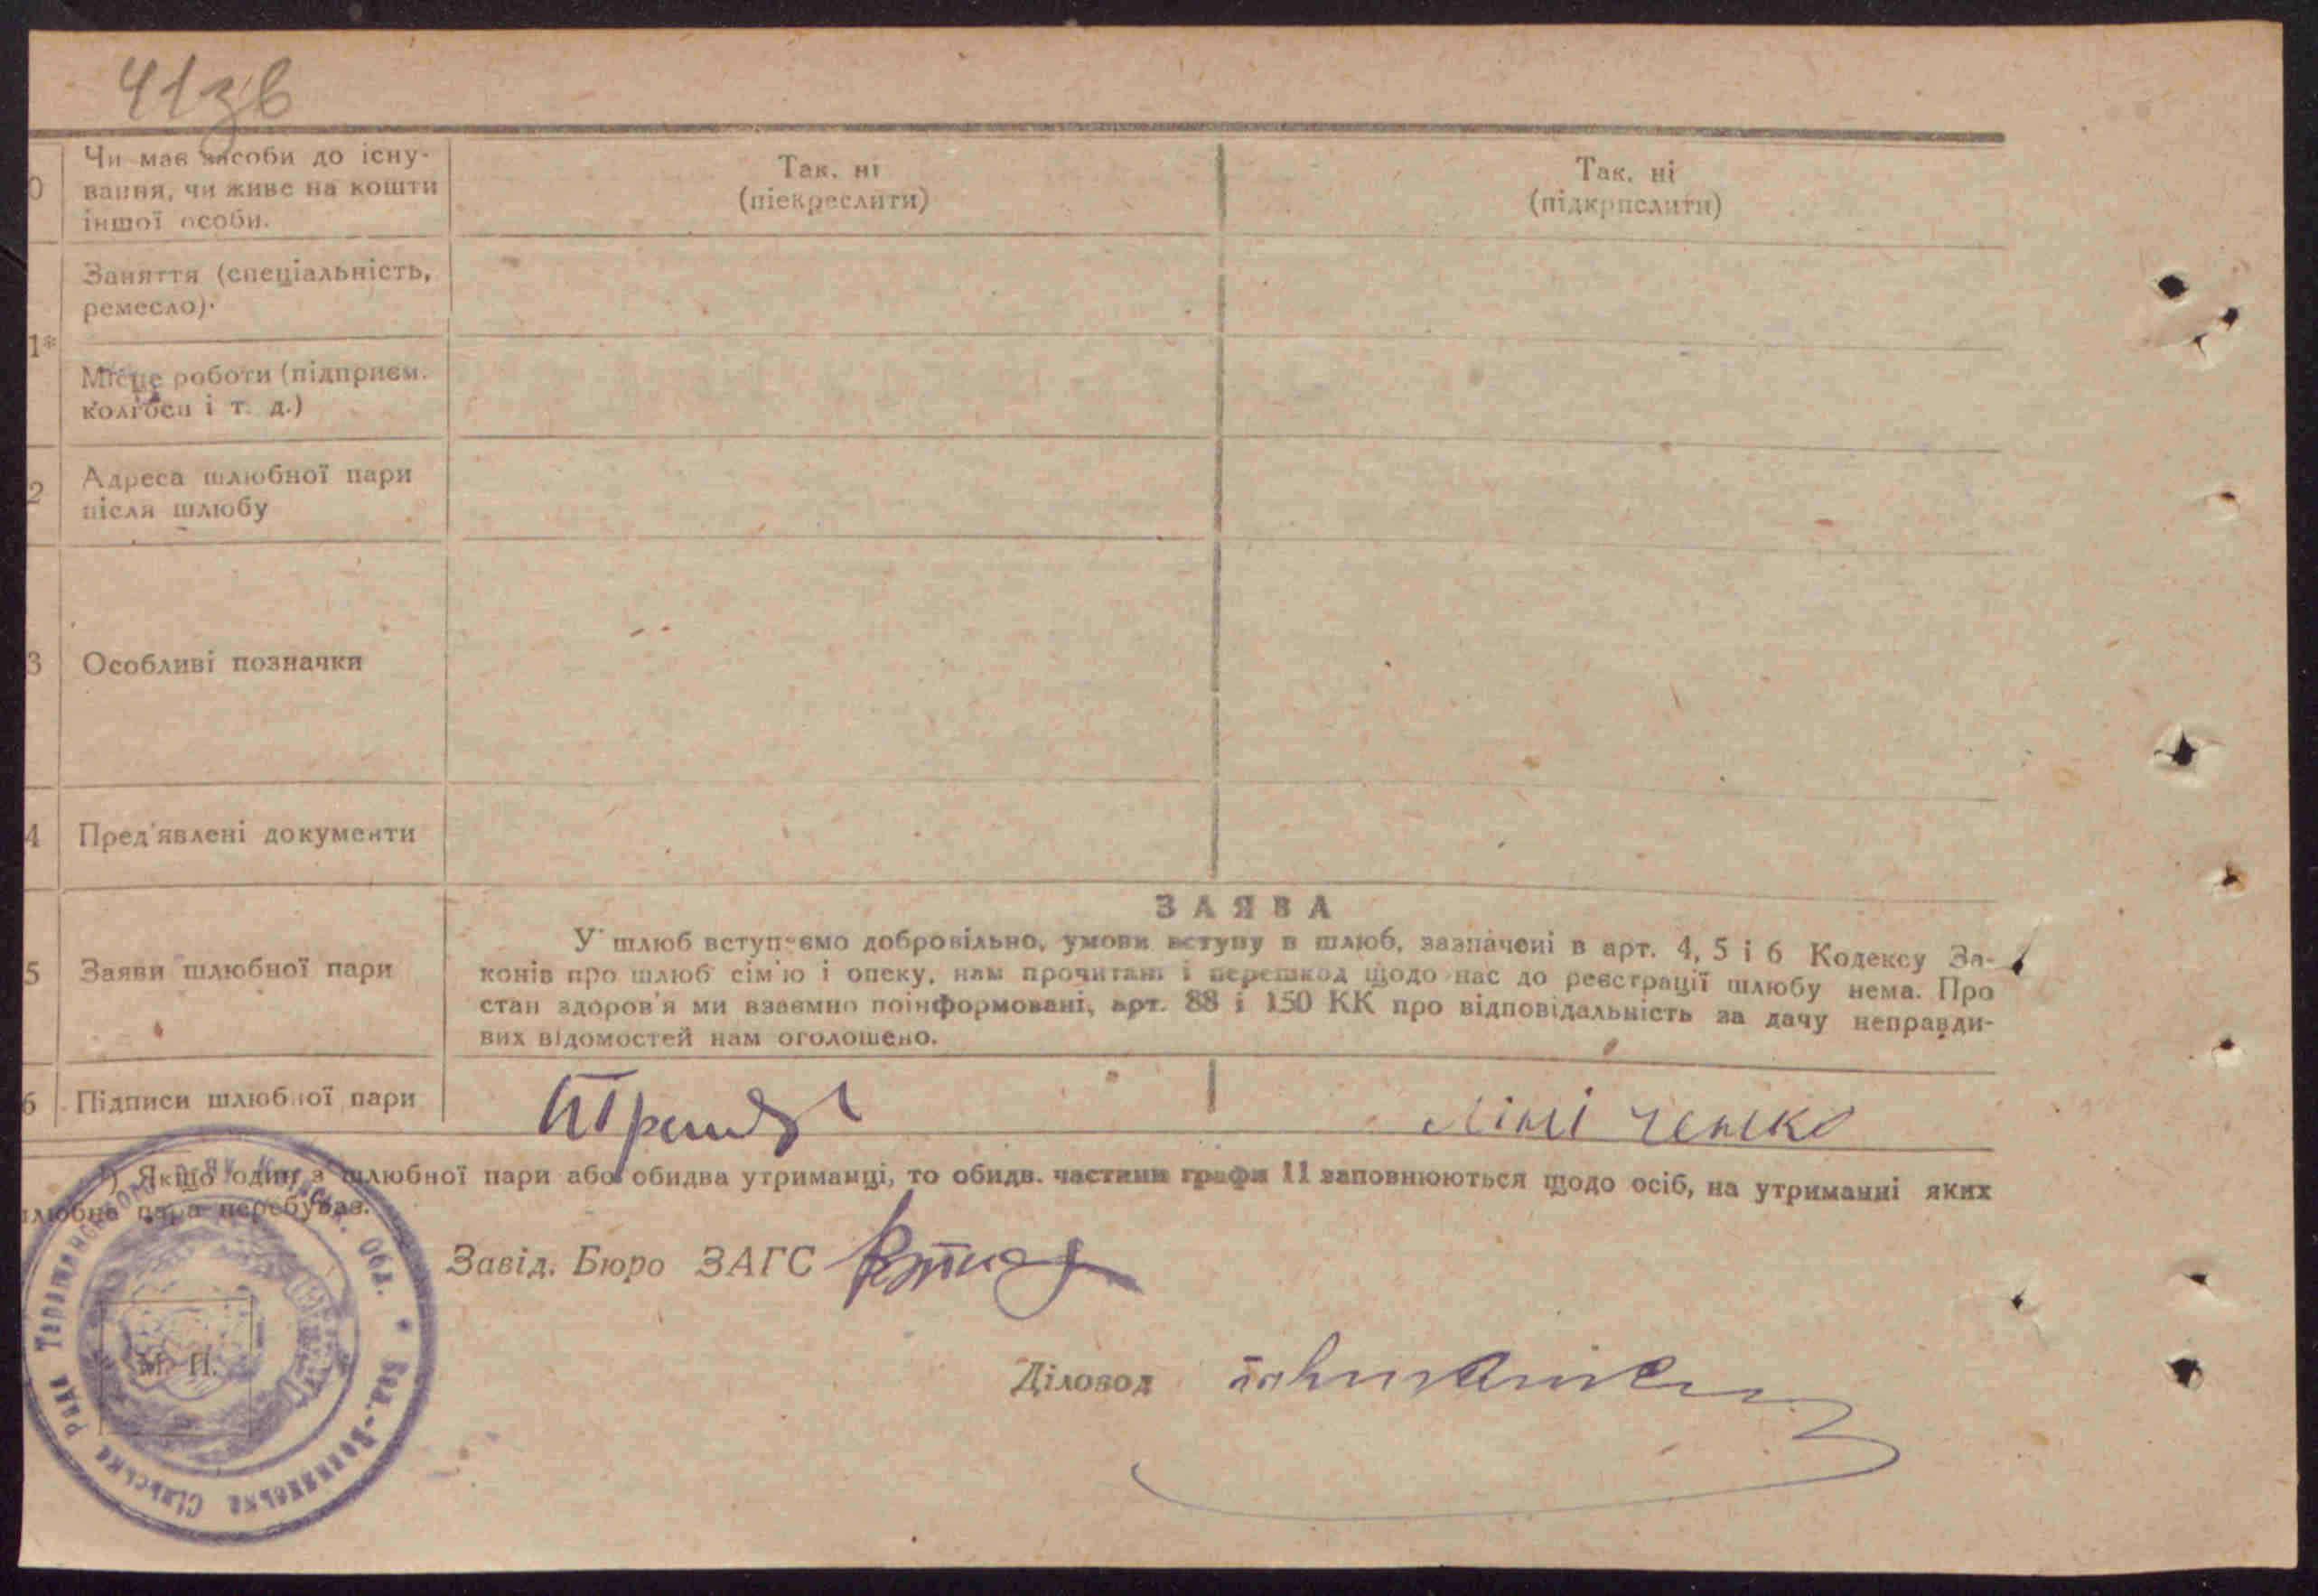 41зв
0 Чи має засоби до існу-
вання, чи живе на кошти
іншої особи.
Так. ні
(піекреслити)
Так. ні
(підкрислити)
1*
Заняття (спеціальність,
ремесло).
Місце роботи (підприєм.
колгосп і т. д.)
2 Адреса шлюбної пари
після шлюбу
3 Особливі позначки
4 Пред'явлені документи
5 Заяви шлюбної пари
ЗАЯВА
У шлюб вступаємо добровільно, умови вступу в шлюб, зазначені в арт. 4, 5 і 6 Кодексу За-
конів про шлюб сім'ю і опеку, нам прочитані і перешкод щодо нас до реєстрації шлюбу нема. Про
стан здоров'я ми взаємно поінформовані, арт. 88 і 150 КК про відповідальність за дачу неправди-
вих відомостей нам оголошено.
6 Підписи шлюбної пари
*) Якщо один з шлюбної пари або обидва утриманці, то обидв. частини графи 11 заповнюються щодо осіб, на утриманні яких
шлюбна пара перебуває.
Завід. Бюро ЗАГС
М. П.
Діловод
Сільська Рада Таращанського р-ну Київськ. Обл.